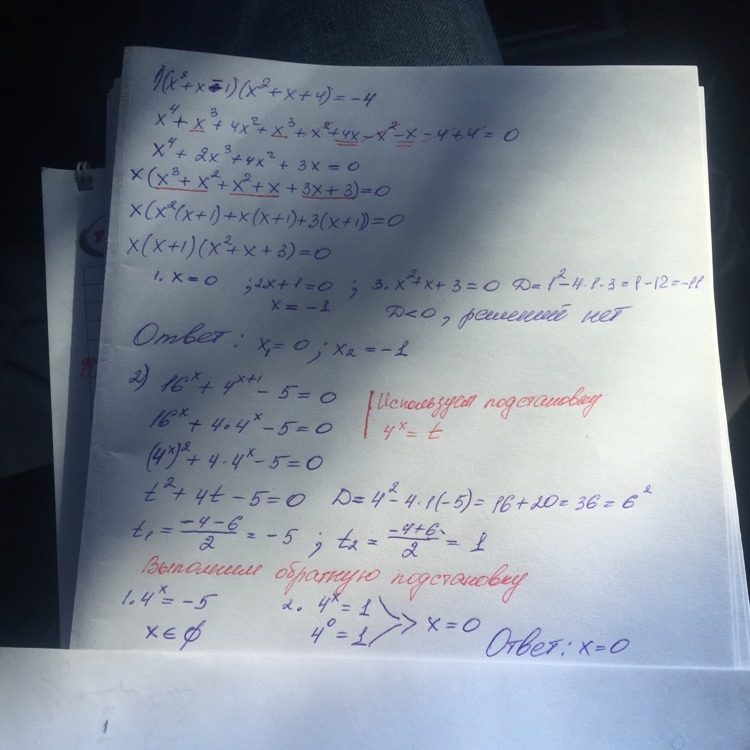 1) (x²+x-1)(x²+x+4)=-4
x⁴+x³+4x²+x³+x²+4x-x²-x-4+4=0
x⁴+2x³+4x²+3x=0
x(x³+x²+x²+x+3x+3)=0
x(x²(x+1)+x(x+1)+3(x+1))=0
x(x+1)(x²+x+3)=0
1. x=0 ; 2x+1=0 ; 3. x²+x+3=0 D=1²-4·1·3=1-12=-11
x=-1 D<0, решений нет
Ответ: x₁=0; x₂=-1
2) 16ˣ+4ˣ⁺¹-5=0
Используем подстановку
16ˣ+4·4ˣ-5=0
4ˣ=t
(4ˣ)²+4·4ˣ-5=0
t²+4t-5=0 D=4²-4·1(-5)=16+20=36=6²
t₁=(-4-6)/2=-5 ; t₂=(-4+6)/2=1
Выполним обратную подстановку
1. 4ˣ=-5 2. 4ˣ=1
x∈∅ 4⁰=1 > x=0 Ответ: x=0